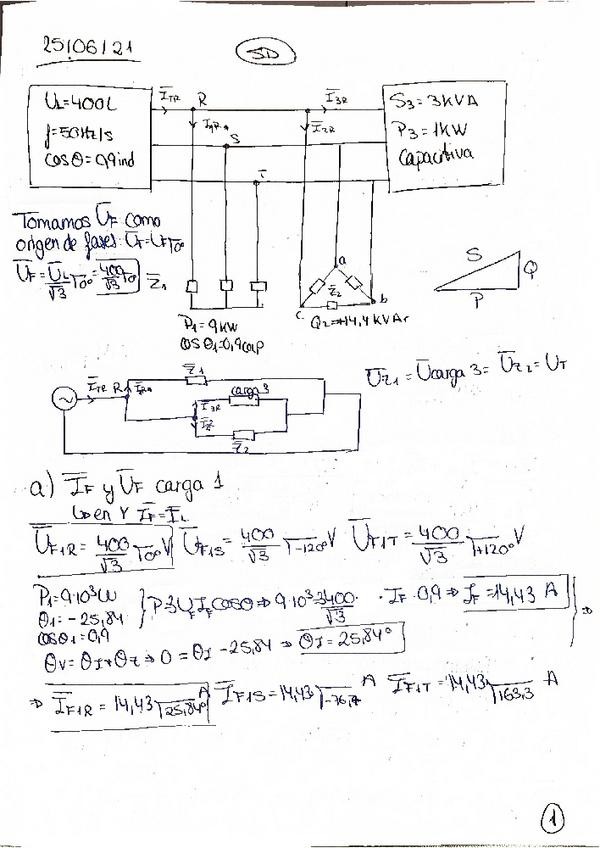 25/06/21
SD
UL=400L
f=50Hz/s
cosθ=0,9ind
I̅TR R I̅3R
I̅1R I̅2R
S
T
S3=3KVA
P3=1KW
Capacitiva
Tomamos U̅F como
origen de fases: U̅F=UF∠0°
U̅F=U̅L/√3∠0°=400/√3∠0° Z̅1
P1=9KW
cosθ1=0,9cap
a
Z̅2
c b
Q2=+14,4KVAr
S
Q
P
I̅TR R I̅1R Z̅1
I̅3R carga 3
I̅2 Z̅2
U̅Z1=U̅carga 3=U̅Z2=UT
a) I̅F y U̅F carga 1
↳en Y I̅F=I̅L
U̅F1R=400/√3∠0°V U̅F1S=400/√3∠-120°V U̅F1T=400/√3∠+120°V
P1=9·10³W
θ1=-25,84
cosθ1=0,9
P=3UFIFcosθ⇒9·10³=3400/√3·IF·0,9⇒IF=14,43 A ⇒
θV=θI+θZ⇒0=θI-25,84⇒θI=25,84°
⇒I̅F1R=14,43∠25,84° A I̅F1S=14,43∠-76,7 A I̅F1T=14,43∠163,3 A
1